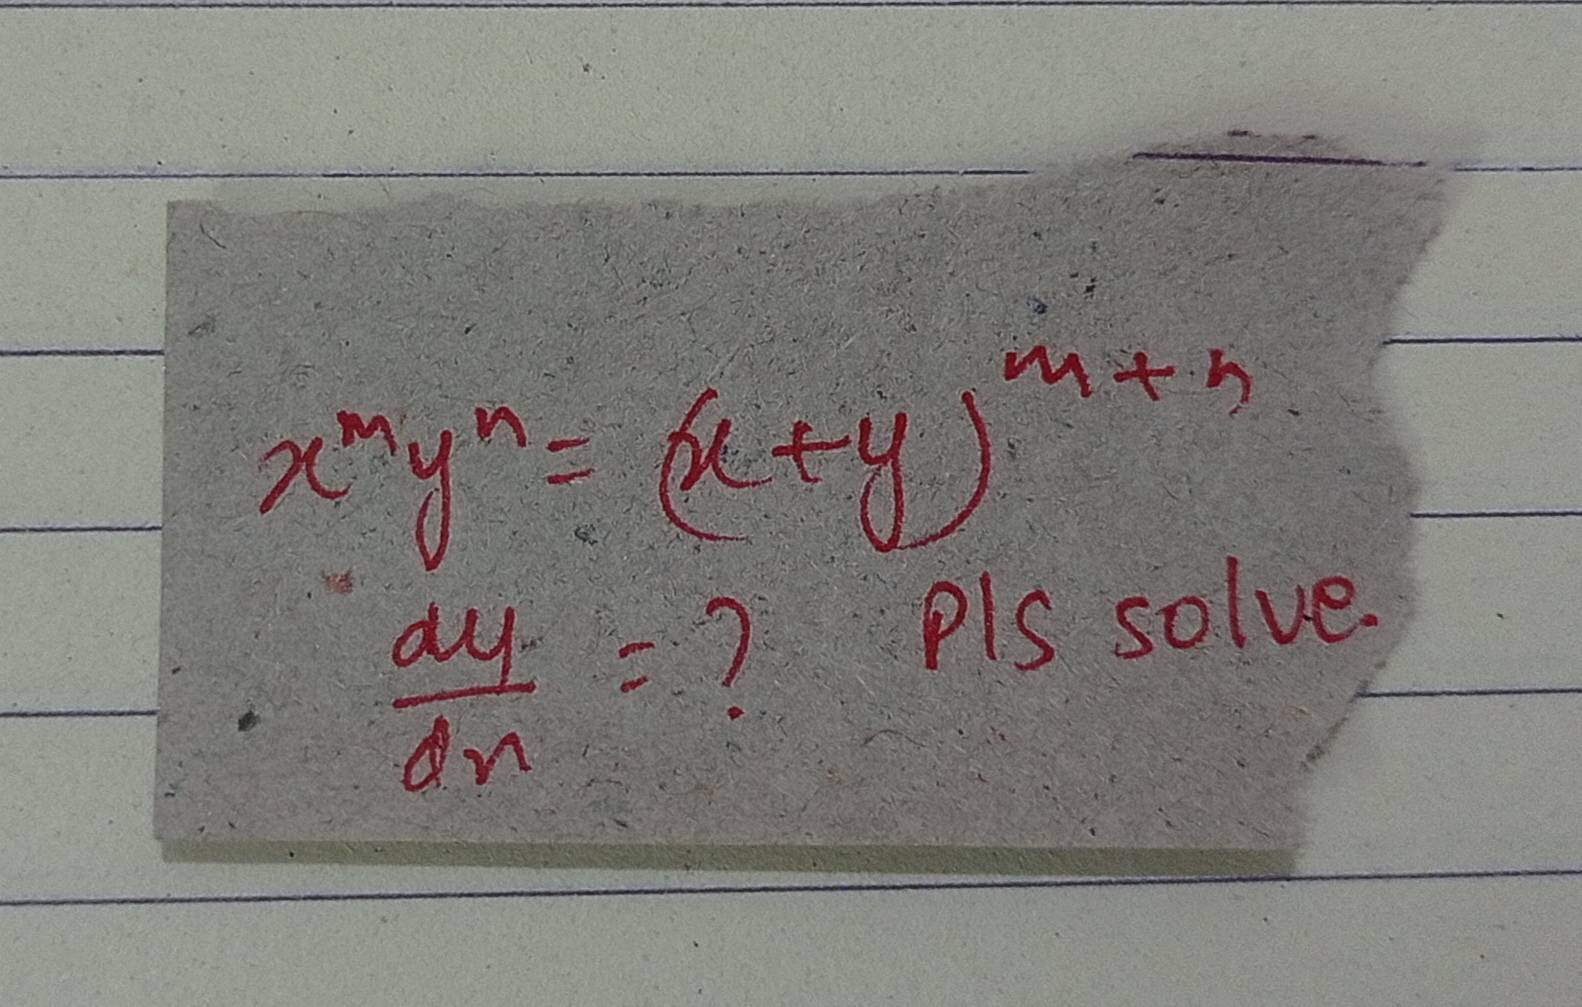 xᵐyⁿ = (x+y)ᵐ⁺ⁿ
dy/dx = ? Pls solve.